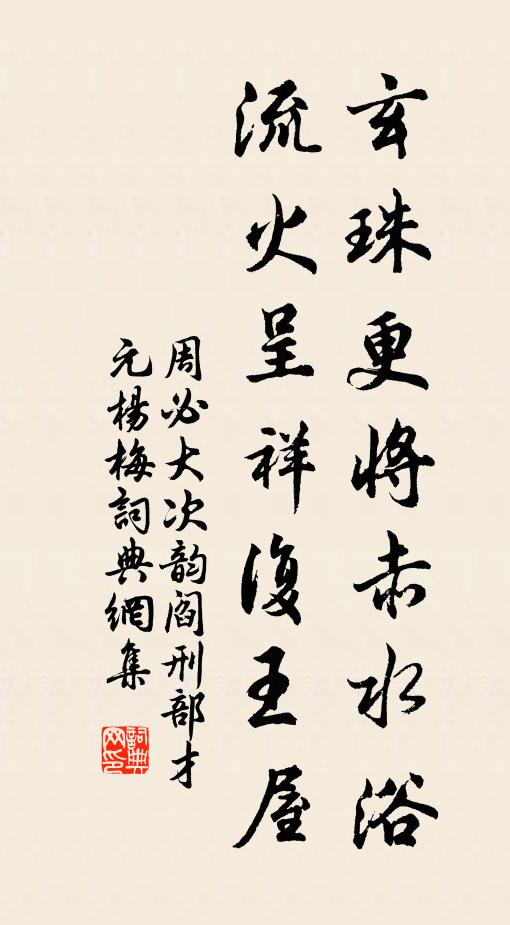 玄珠更將赤水浴
流火呈祥復王屋
周必大次韵閻刑部才
元楊梅詞典網集
詞典
网印